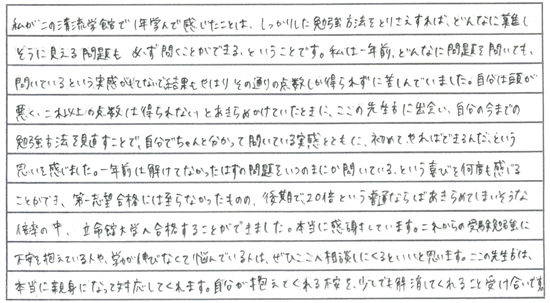 私がこの清流学館で1年学んで感じたことは、しっかりした勉強方法をとりさえすれば、どんなに難し
そうに見える問題も 必ず解くことができる、ということです。私は一年前、どんなに問題を解いても、
解いているという実感がもてないで結果もやはり その通りの点数しか得られずに苦しんでいました。自分は頭が
悪く、これ以上の点数は得られない とあきらめかけていたときに、ここの先生方に出会い、自分の今までの
勉強方法を見直すことで、自分でちゃんと分かって解いている実感とともに、初めて、やればできるんだ、という
思いを感じました。一年前は解けてなかったはずの問題をいつのまにか解いている、という喜びを何度も感じる
ことができ、第一志望合格には至らなかったものの、後期で、20倍という普通ならばあきらめてしまいそうな
倍率の中、立命館大学へ合格することができました。本当に感謝しています。これからの受験勉強に
不安を抱えている人や、学力が伸びなくて悩んでいる人は、ぜひここへ相談しにくるといいと思います。ここの先生方は、
本当に親身になって対応してくれます。自分が抱えてくれる不安を、少しでも解消してくれること受け合いです。